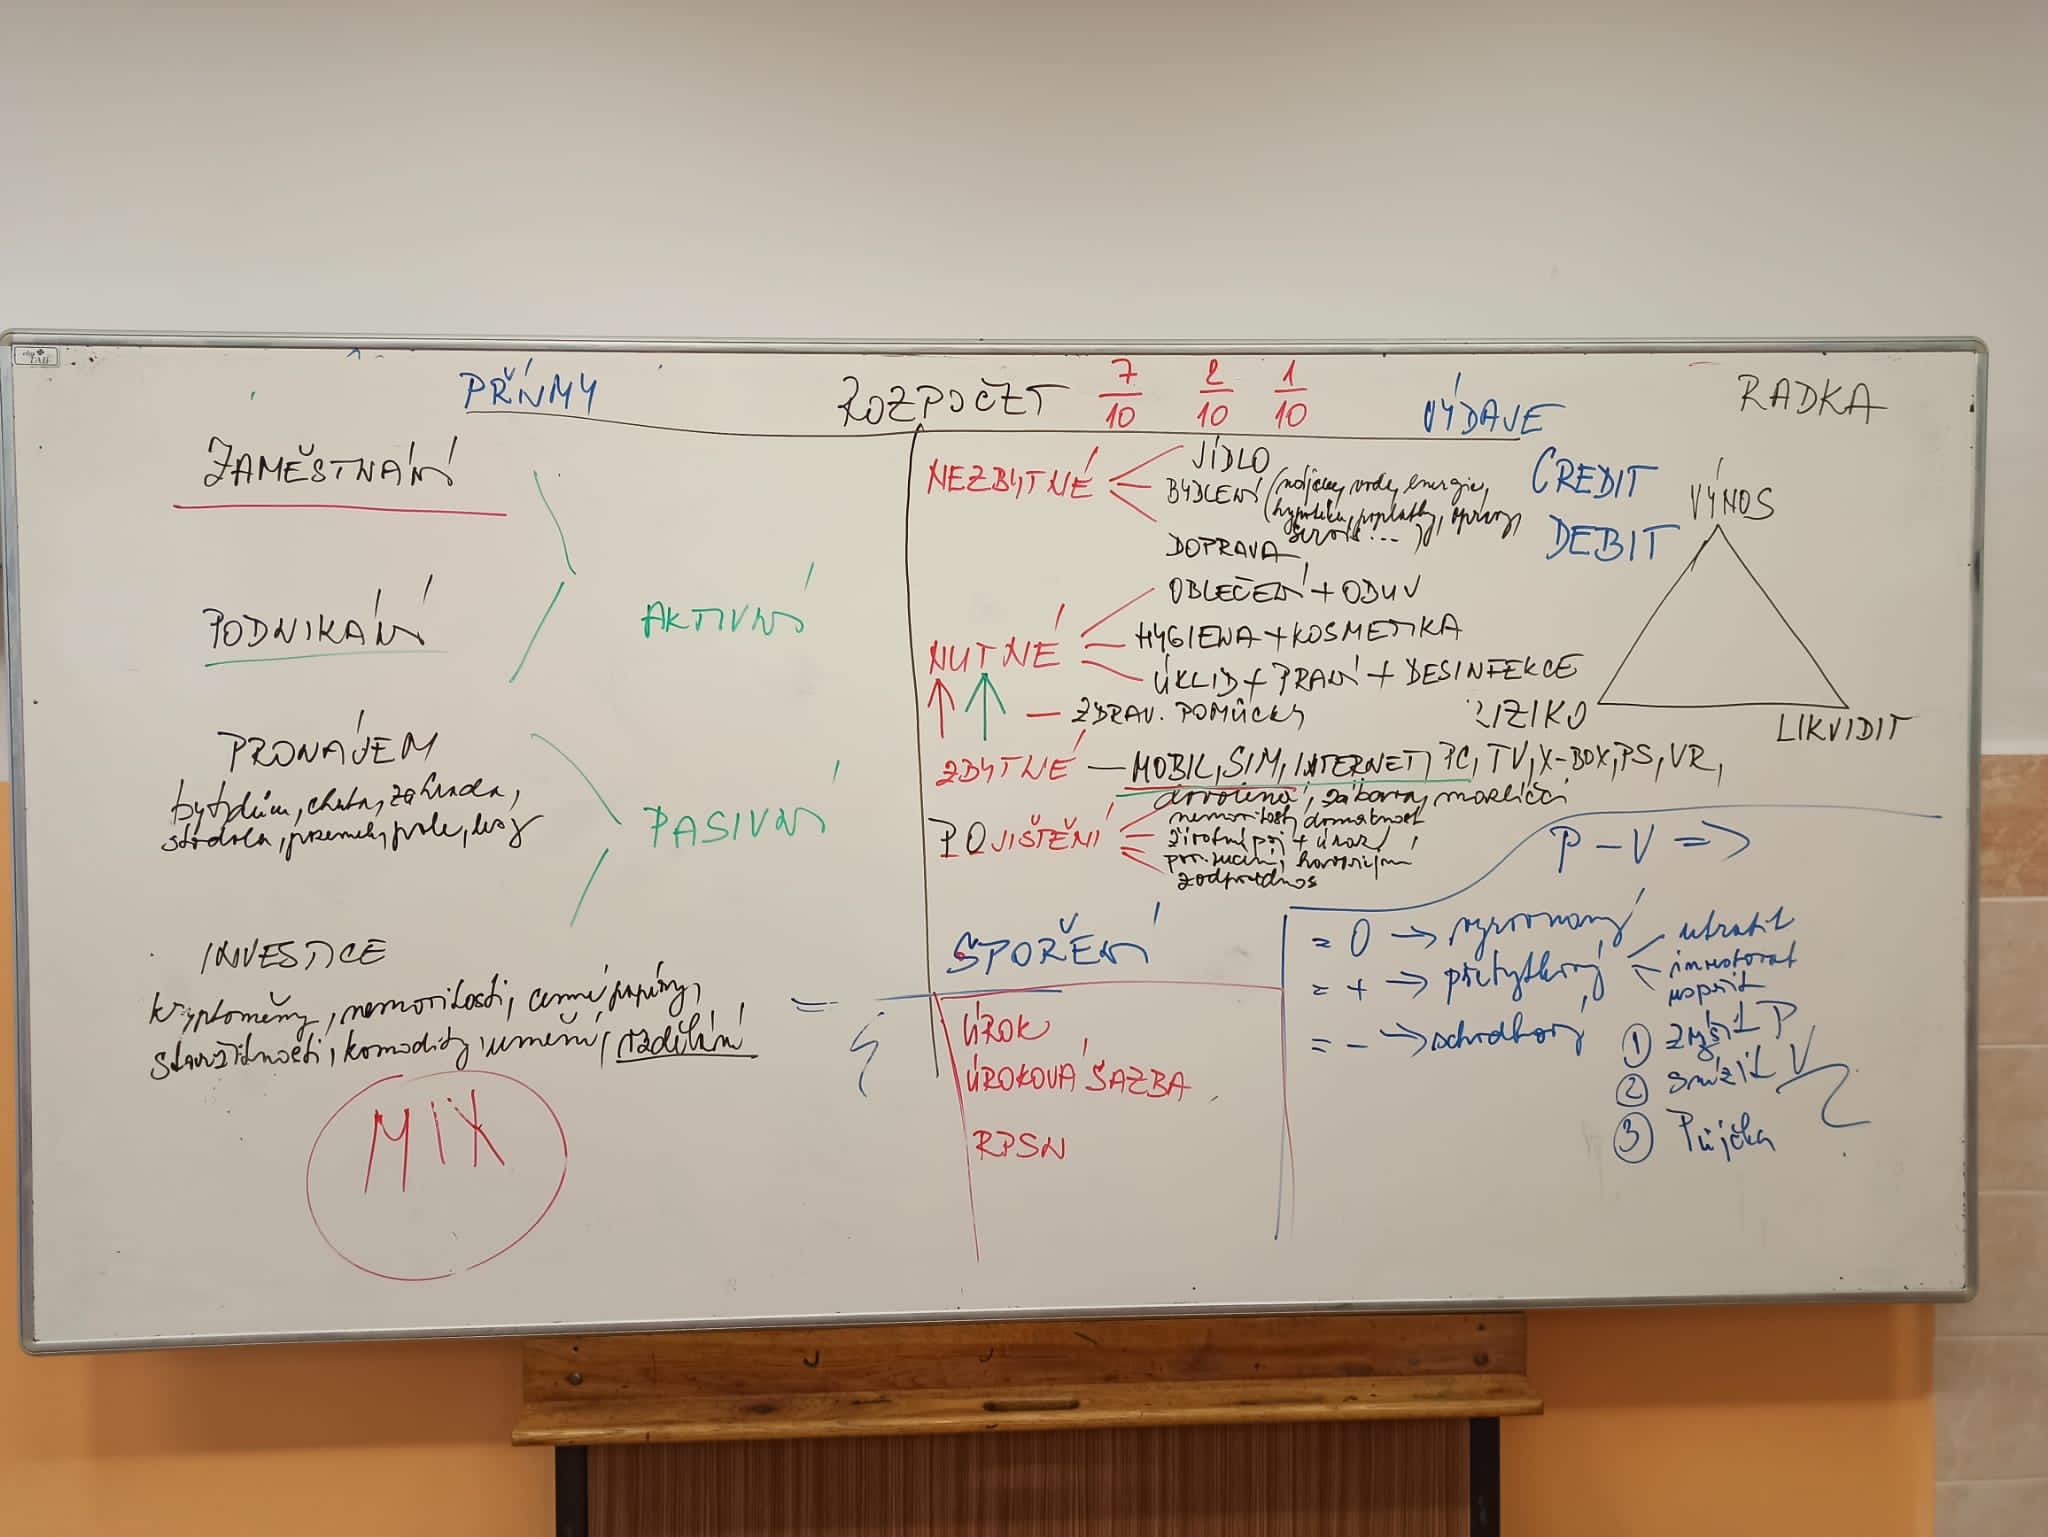 PŘÍJMY
ROZPOČET 7/10 2/10 1/10
VÝDAJE
RADKA
ZAMĚSTNÁNÍ
PODNIKÁNÍ
AKTIVNÍ
PRONÁJEM
byt, dům, chata, zahrada,
stodola, pozemek, pole, lesy
PASIVNÍ
INVESTICE
kryptoměny, nemovitosti, cenné papíry,
starožitnosti, komodity, umění, vzdělání
MIX
NEZBYTNÉ
JÍDLO
BYDLENÍ (nájem, vody, energie,
hypotéka, poplatky, opravy,
servis...)
DOPRAVA
NUTNÉ
OBLEČENÍ + OBUV
HYGIENA + KOSMETIKA
ÚKLID + PRANÍ + DESINFEKCE
ZDRAV. POMŮCKY
ZBYTNÉ — MOBIL, SIM, INTERNET, PC, TV, X-BOX, PS, VR,
dovolená, zábava, mazlíčci
POJIŠTĚNÍ
nemovitost, domácnost
životní poj + úraz
pov. ručení, havarijní
zodpovědnos
SPOŘENÍ
ÚROK
ÚROKOVÁ SAZBA
RPSN
CREDIT
DEBIT
VÝNOS
RIZIKO
LIKVIDIT
P – V =>
= 0 → vyrovnaný
= + → přebytkový
utratit
investovat
uspořit
= – → schodkový
① zvýšit P
② snížit V
③ Půjčka